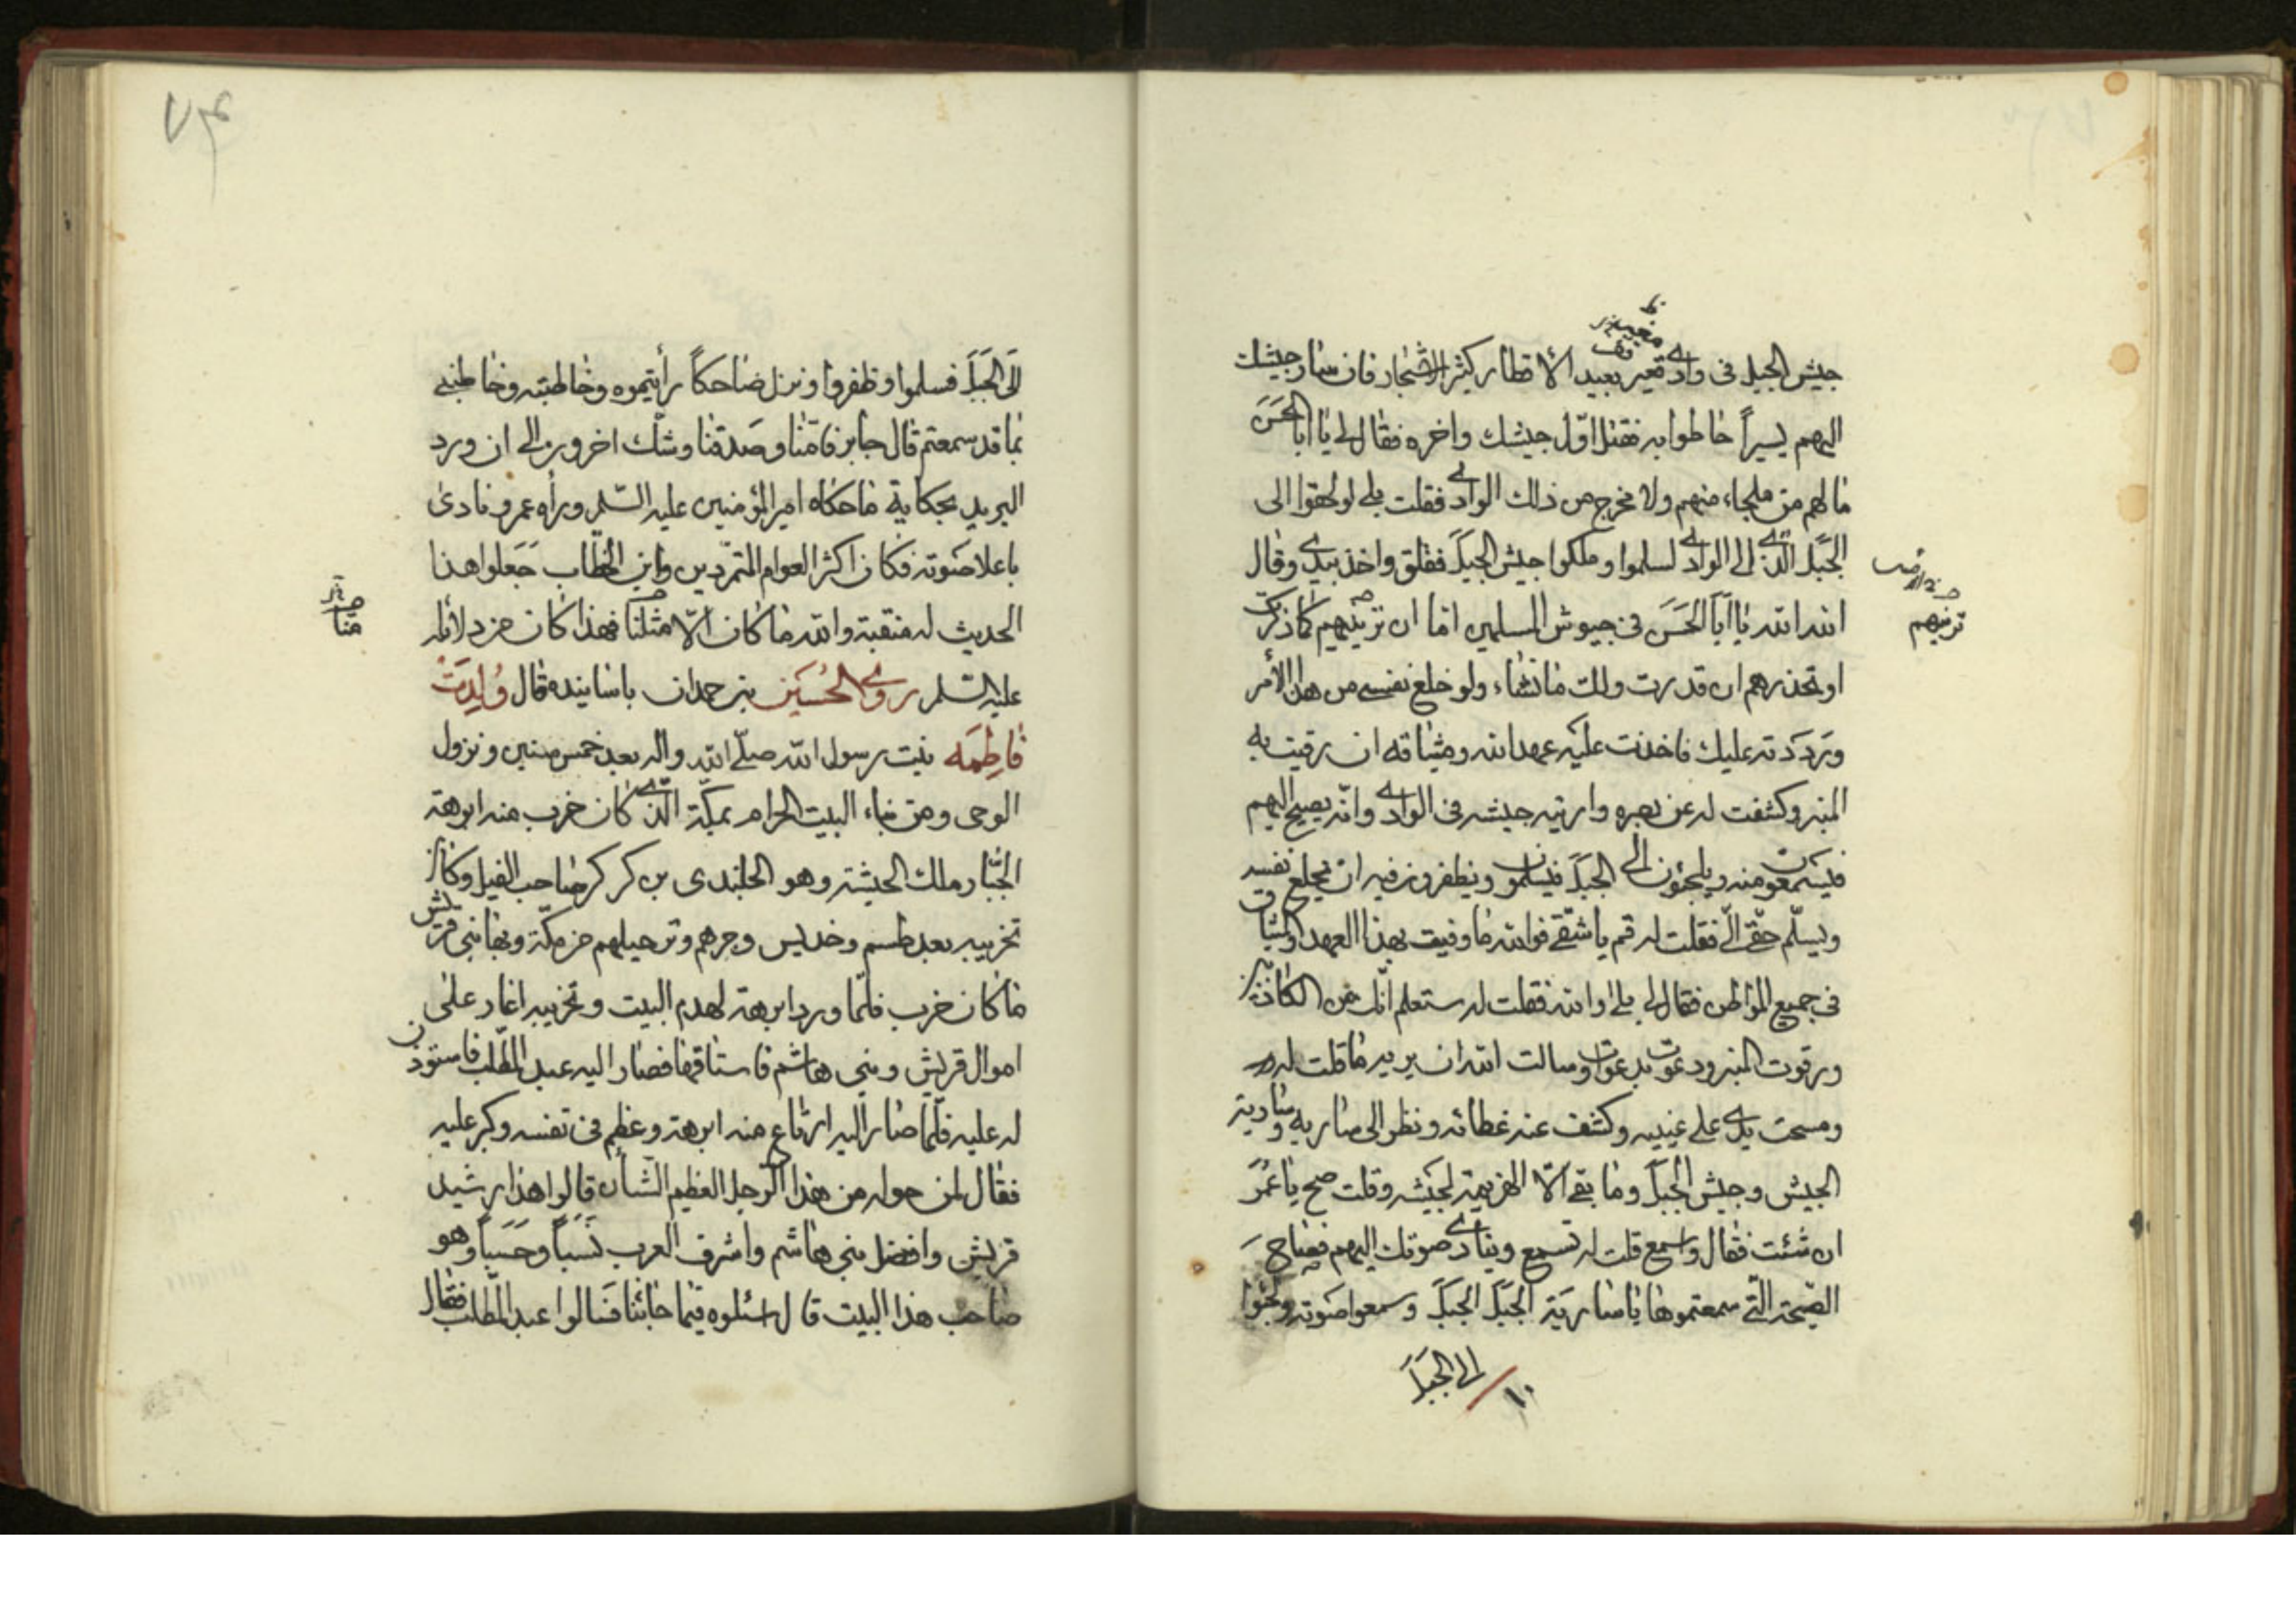 جيش الجبل فى وادى قعير بعيد الأقطار كثير الاشجار فان سار جيشك
اليهم يسيراً احاطوا به فقتل اوّل جيشك واخره فقال لى يا ابا الحَسَن
ما لهم من ملجاء منهم ولا مخرج من ذلك الوادى فقلت بلى لو لحقوا الى
الجَبَل الّذى الى الوادى لسلموا وملكوا جيش الجبَل فقلق واخذ بيدى وقال
الله الله يا اَبَا الحَسَن فى جيوش المسلمين اما ان ترينيهم كما ذكرت
ترينهم
او تحذرهم ان قدرت ولك ما تشاء ولو خلع نفسى من هذا الأمر
ورَددته عليك فاخذت عليه عهد الله وميثاقه ان رقيت به
المنبر وكشفت له عن بصره واريته جيشه فى الوادى وانّه يصيح اليهم
فيسمعون منه ويلجئون الى الجبَل فيسلمون ويظفرون فيه ان يخلع نفسه
ويسلّم حقّى الىّ فقلت له قم يا شقّى فوالله ما وفيت بهذا العهد والميثاق
فى جميع المواطن فقال لى بلى والله فقلت له ستعلم انّك من الكاذبين
ورقوت المنبر ودعوت بدعوات وسالت الله ان يريه ما قلت له
ومسحت يدى على عينيه وكشف عنه غطائه ونظر الى سارية وسارية
الجيش وجيش الجبَل وما بقى الّا الهزيمة لجيشه وقلت صح يا عُمَر
ان شئت فقال واسمع قلت له تسمع وينادى صوتك اليهم فصاح
الصّيحة الّتى سمعتموها يا سارِيَة الجَبَل الجَبَل وسمعوا صَوته ولجئوا
الى الجَبَل
الَى الجَبَل فسلموا وظفروا ونزل ضاحكاً رأيتموه وخاطبته وخاطبنى
بما قد سمعتم قال جابر فامّنا وصَدقنا وشك اخرون الى ان ورد
البريد بحكاية ما حكاه امير المؤمنين عليه السّلم ورأه عمر ونادى
باعلا صَوته فكان اكثر العوام المتمرّدين وابن الخطّاب جَعلوا هذا
الحديث له منقبة والله ما كان الّا مثلنا فهذا كان من دلائله
منّا
عليه السّلم روى الحُسَين بن حمدان باسانيده قال وُلِدَتْ
فَاطِمَه بنت رسول الله صلّى الله واله بعد خمس سنين ونزول
الوحى ومن بناء البيت الحرام بمكّة الّذى كان خرب منه ابرهة
الجبّار ملك الحبشة وهو الجلندى بن كركر صاحب الفيل وكان
تخريبه بعد طسم وجديس وجرهم وترحيلهم من مكّة وبها بنى قريش
ما كان خرب فلمّا ورد ابرهة لهدم البيت وتخريبه اغار على
اموال قريش وبنى هاشم فاستاقها فصار اليه عبد المطّلب فاستوذن
له عليه فلمّا صار اليه ارتاع منه ابرهة وعظم فى نفسه وكبر عليه
فقال لمن حوله من هذا الرجل العظيم الشأن قالوا هذا رشيد
قريش وافضل بنى هاشم واشرف العرب نَسباً وحَسَباً وهو
صاحب هذا البيت قال اسئلوه فيما جائنا فَسَالوا عبد المطّلب فقال